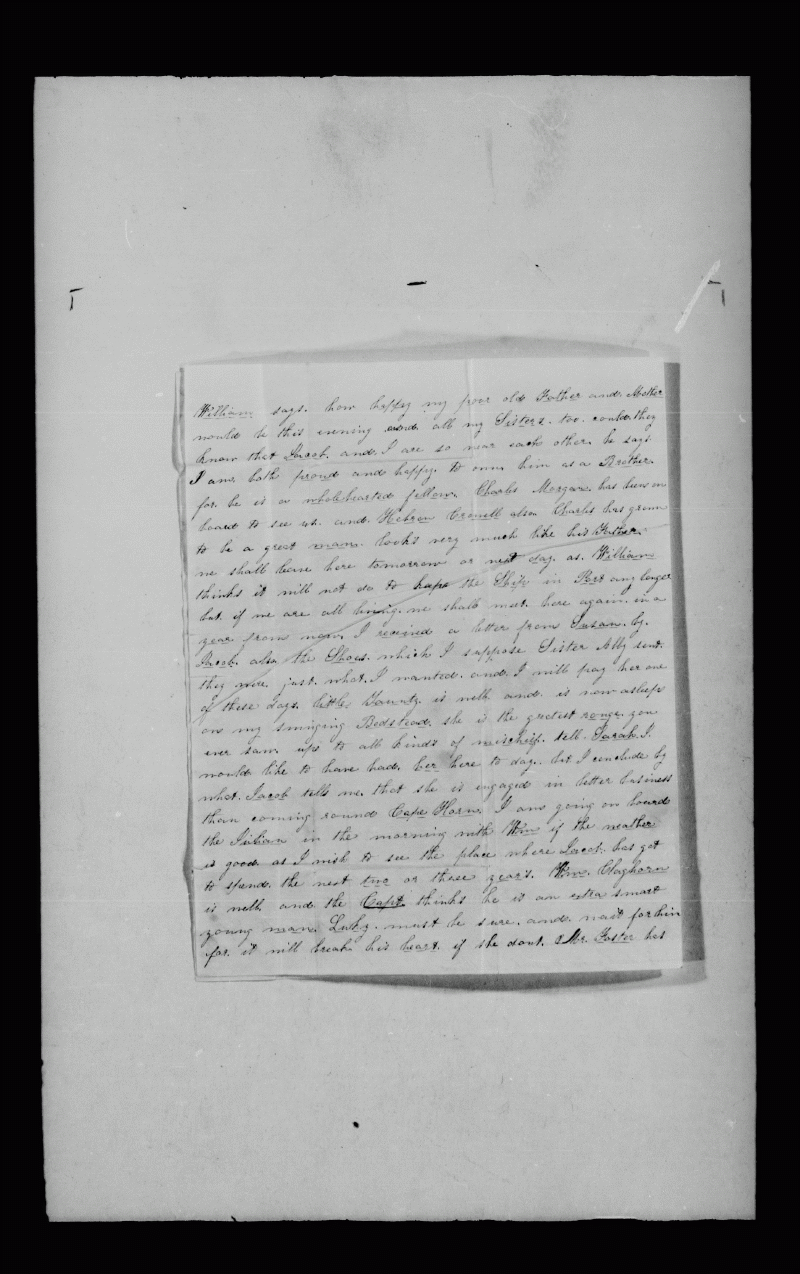 William says. how happy my poor old Father and Mother
would be this evening and all my Sisters. too. could they
know that Jacob. and. I are so near each other. he says
I am. both proud and happy. to own him as a Brother.
for. he is a wholehearted fellow. Charles Morgan. has been on
board to see us. and. Hebron Crowell also Charles has grown
to be a great man. looks very much like his Father.
we shall leave here tomorrow or next day. as. William
thinks it will not do to keep the Ship in Port any longer
but if we are all living. we shall meet here again. in a
year from now. I received a letter from Susan. by.
Jacob. also the Shoes. which I suppose Sister Abby sent.
they were. just. what. I wanted. and. I will pay her one
of these days. little is well and. is now asleep
on my swinging Bedstead. she is the gretest rouge you
ever saw. up to all kinds of mischief. tell. Sarah I.
would like to have had. her here to day. but I conclude by
what. Jacob tells me. that she is engaged in better business
than coming round Cape Horn. I am going on board
the Julian in the morning with Wm if the weather
is good. as I wish to see the place where Jacob. has got
to spend. the next two or three year's. Wm. Claghorn
is well. and. the Capt. thinks he is an extra smart
young man. must be sure. and. wait for him
for. it will break his heart. if she dont. Mr. Foster has